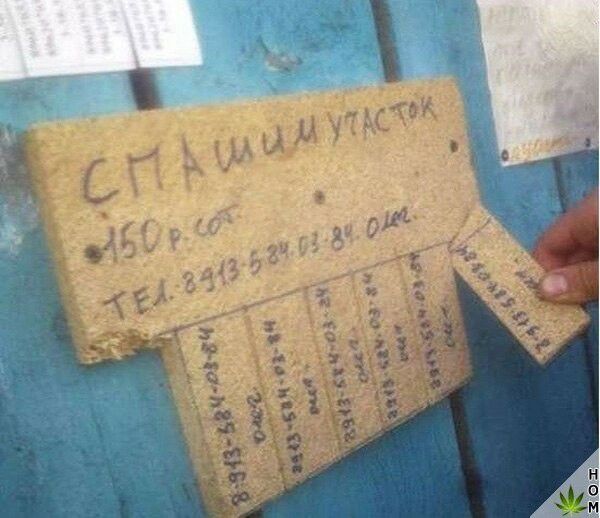 СПАШИМ УЧАСТОК
150 р. сот.
ТЕЛ. 8913-584.03-84. Олег.
8913-584-03-84
Олег
8913-584-03-84
Олег
8913-584-03-84
Олег
8913-584-03-84
Олег
8913-584-03-84
Олег
8913-584-03-84
Олег
HOM